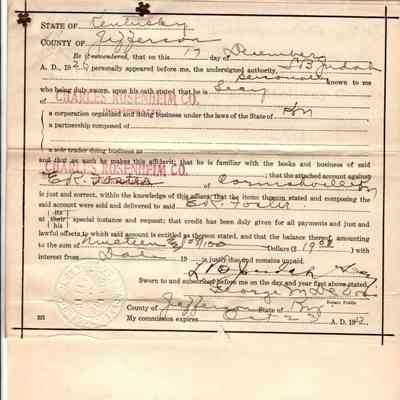 STATE OF Kentucky
COUNTY OF Jefferson
Be it remembered, that on this 17 day of December
A. D., 19 personally appeared before me, the undersigned authority, Judah
personally known to me
who being duly sworn, upon his oath stated that he is Secy
of CHARLES ROSENHEIM CO.
INCORPORATED
a corporation organized and doing business under the laws of the State of Ky
a partnership composed of
a sole trader doing business as
and that as such he makes this affidavit; that he is familiar with the books and business of said
CHARLES ROSENHEIM CO. ; that the attached account against
E.R. Foster of Cornishville Ky
is just and correct, within the knowledge of this affiant; that the items therein stated and composing the
said account were sold and delivered to said E.R. Foster
at their special instance and request; that credit has been duly given for all payments and just and
his
lawful offsets, to which said account is entitled as thereon stated, and that the balance thereof amounting
to the sum of Nineteen & 08/100 Dollars ($ 19.08 ) with
interest from Date 19 is justly due and remains unpaid.
Judah Secy
Sworn to and subscribed before me on the day and year first above stated.
George M
Notary Public
County of Jefferson State of Ky
My commission expires Oct 23 A. D. 19